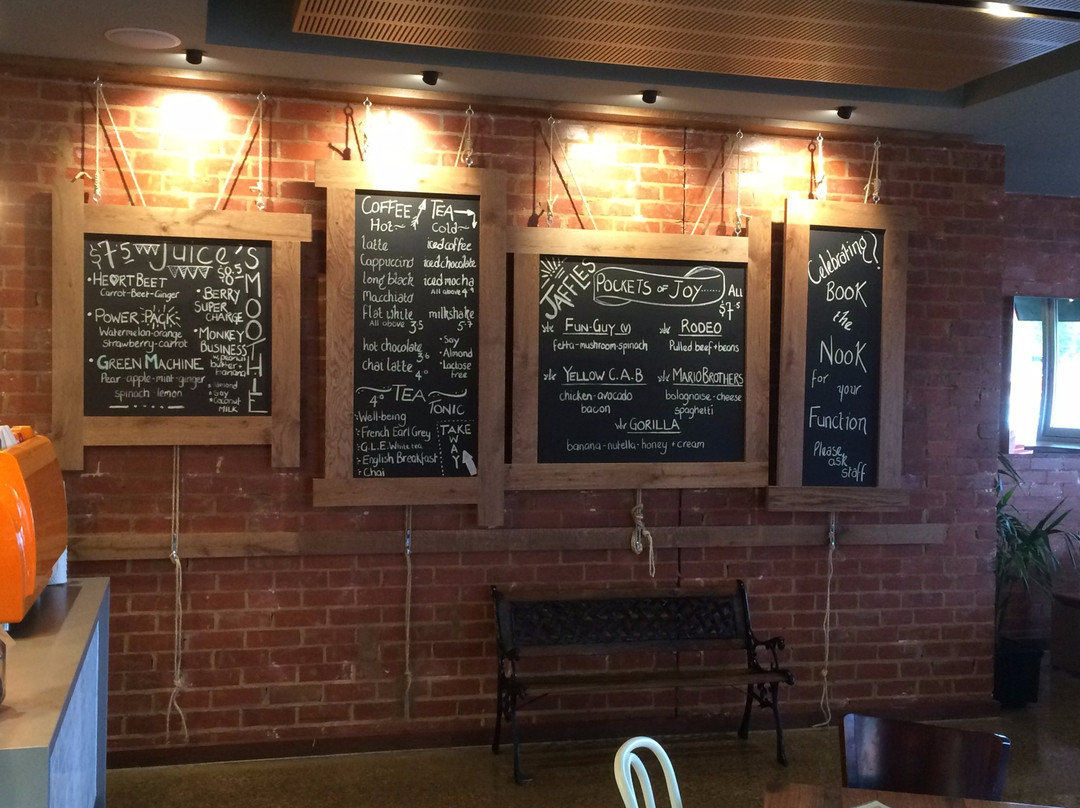 $7.5 Juice's
• HEARTBEET
Carrot-Beet-Ginger
• POWER PACK
Watermelon-orange
Strawberry-carrot
• GREEN MACHINE
Pear-apple-mint-ginger
spinach lemon
SMOOTHIE
• BERRY
SUPER
CHARGE
• MONKEY
BUSINESS
banana
• almond
• Soy
• Coconut
MILK
COFFEE TEA
Hot~ Cold~
latte iced coffee
Cappuccino iced chocolate
long black iced mocha
Macchiato All above 4.5
Flat white milkshake
All above 3.5 5.7
hot chocolate 3.6
chai latte 4.0
• Soy
• Almond
• Lactose
free
4.0 TEA
TONIC
Well-being
French Earl Grey
G.L.E. White tea
English Breakfast
Chai
TAKE
WAY
JAFFLES
POCKETS OF JOY......
All
$7.5
FUN-GUY (V)
fetta-mushroom-spinach
RODEO
Pulled beef+beans
YELLOW C.A.B
chicken-avocado
bacon
MARIO BROTHERS
bolognaise-cheese
spaghetti
GORILLA
banana-nutella-honey+cream
Celebrating??
BOOK
the
NOOK
for your
Function
Please
ask
staff